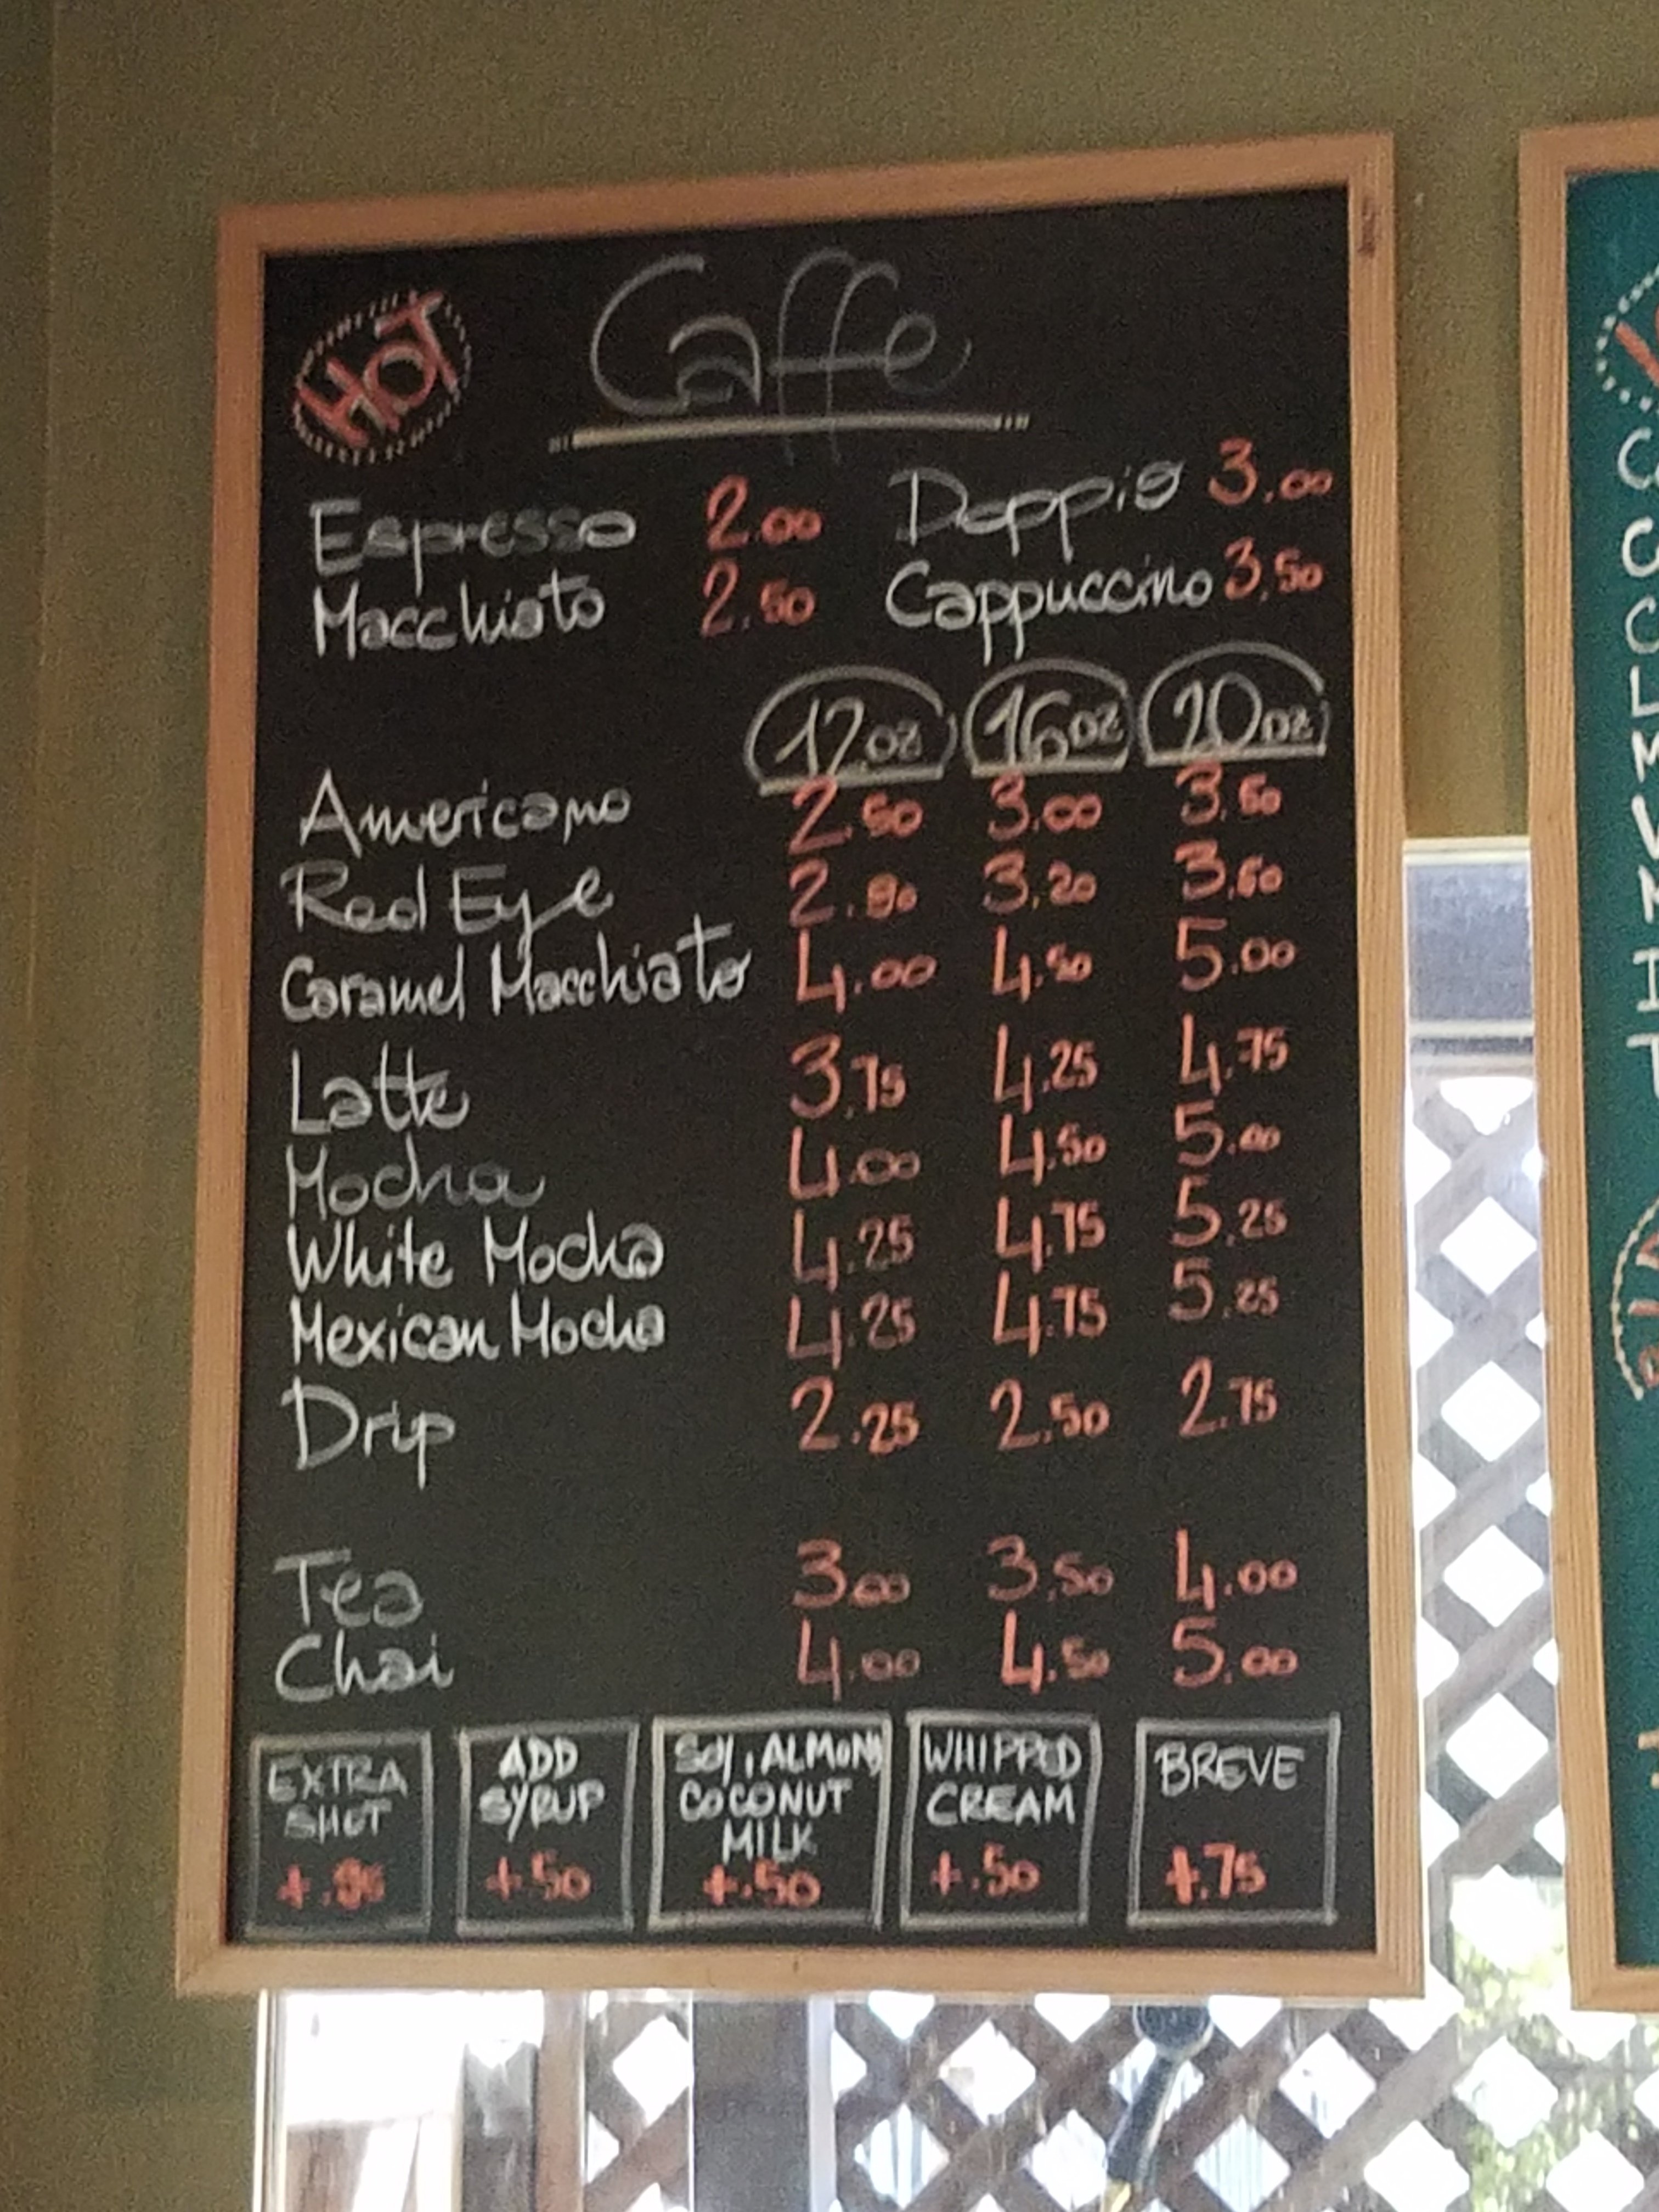 HOT
Caffe
Espresso 2.00 Doppio 3.00
Macchiato 2.50 Cappuccino 3.50
12oz 16oz 20oz
Americano 2.50 3.00 3.50
Red Eye 2.80 3.20 3.60
Caramel Macchiato 4.00 4.50 5.00
Latte 3.75 4.25 4.75
Mocha 4.00 4.50 5.00
White Mocha 4.25 4.75 5.25
Mexican Mocha 4.25 4.75 5.25
Drip 2.25 2.50 2.75
Tea 3.00 3.50 4.00
Chai 4.00 4.50 5.00
EXTRA SHOT
ADD SYRUP +.50
SOY, ALMOND COCONUT MILK +.50
WHIPPED CREAM +.50
BREVE +.75